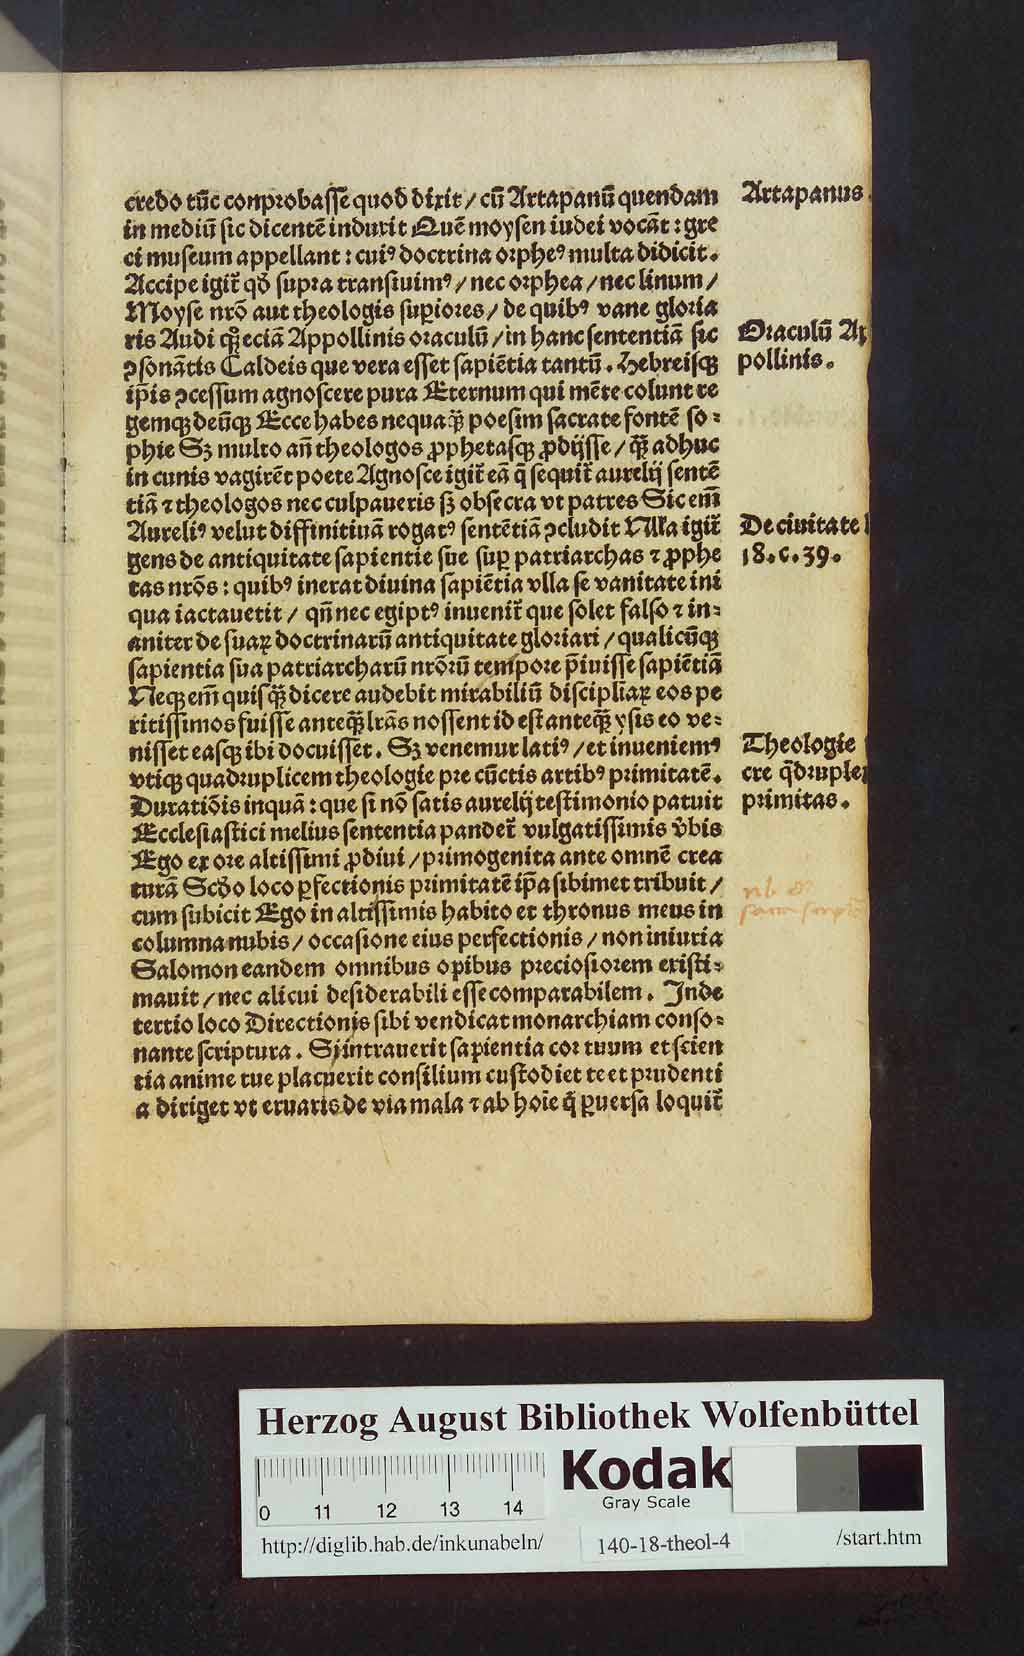 credo tūc conprobasse quod dixit / cū Artapanū quendam
in mediū sic dicentē induxit Quē moysen iudei vocāt : gre
ci museum appellant : cuiꝰ doctrina orpheꝰ multa didicit.
Accipe igit̄ qđ supra transiuimꝰ / nec orphea / nec linum /
Moyse nrō aut theologis suꝑiores / de quibꝰ vane gloria
ris Audi qꝫ̄ eciā Appollinis oraculū / in hanc sententiā sic
ꝯsonātis Caldeis que vera esset sapiētia tantū. Hebreisqꝫ
ip̄is ꝯcessum agnoscere pura Æternum qui mēte colunt re
gemqꝫ deūqꝫ Ecce habes nequaqꝫ̄ poesim sacrate fontē so⸗
phie Sꝫ multo an̄ theologos ꝓphetasqꝫ ꝓdijsse / qꝫ̄ adhuc
in cunis vagirēt poete Agnosce igit̄ eā q̄ sequit̄ aurelij sentē
tiā ⁊ theologos nec culpaueris sꝫ obsecra vt patres Sic em̄
Aureliꝰ velut diffinitiuā rogatꝰ sentētiā ꝯcludit Nulla igit̄
gens de antiquitate sapientie sue suꝑ patriarchas ⁊ ꝓphe
tas nrōs : quibꝰ inerat diuina sapiētia vlla se vanitate ini
qua iactauetit / qn̄ nec egiptꝰ inuenit̄ que solet falso ⁊ in⸗
aniter de suaꝝ doctrinarū antiquitate gloriari / qualicūqꝫ
sapientia sua patriarcharū nrōrū tempore p̄iuisse sapiētiā
Neqꝫ em̄ quisqꝫ̄ dicere audebit mirabiliū discipliāꝝ eos pe
ritissimos fuisse anteqꝫ̄ lrās nossent id est anteqꝫ̄ ysis eo ve⸗
nisset easqꝫ ibi docuisset. Sꝫ venemur latiꝰ / et inueniemꝰ
vtiqꝫ quadruplicem theologie pre cūctis artibꝰ primitatē.
Duratiōis inquā : que si nō satis aurelij testimonio patuit
Ecclesiastici melius sententia pandet̄ vulgatissimis v̄bis
Ego ex ore altissimi ꝓdiui / primogenita ante omnē crea
turā Scđo loco ꝑfectionis primitatē ip̄a sibimet tribuit /
cum subicit Ego in altissimis habito et thronus meus in
columna nubis / occasione eius perfectionis / non iniuria
Salomon eandem omnibus opibus preciosiorem existi⸗
mauit / nec alicui desiderabili esse comparabilem. Inde
tertio loco Directionis sibi vendicat monarchiam conso⸗
nante scriptura. Si intrauerit sapientia cor tuum et scien
tia anime tue placuerit consilium custodiet te et prudenti
a diriget vt eruaris de via mala ⁊ ab hoīe q̄ ꝑuersa loquit̄
Artapanus.
Oraculū Ap
pollinis.
De ciuitate
18. c. 39.
Theologie
cre q̄druplex
primitas.
Herzog August Bibliothek Wolfenbüttel
Kodak
Gray Scale
0 11 12 13 14
http://diglib.hab.de/inkunabeln/
140-18-theol-4
/start.htm